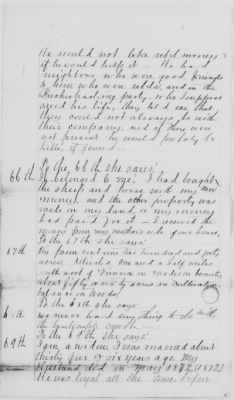 He would not take rebel money
if he could help it – He had
neighbors who were good friends
to him who were rebels, and in the
party who
his life, they told me that
they could not always be with
their company and if they were
not present he would probably be
killed if found
To the 66th she says
66th It belonged to me, I had bought
the sheep and hogs with my own
money, and the other property was
made on my land, or my money
had paid for it – I received the
money from my mother's side
To the 67th she says
67th The farm contains two hundred and forty
acres, situated one and a half miles
south west of Vienna in Madison County
about fifty or sixty acres in cultivation
balance in woods
To the 68th she says
68th We never had any thing to do with
the bankrupt court
To the 69th she says
69th I am a widow I was married about
thirty five or six years ago. My
Husband died on May 1872 (1872)
He was loyal all the time before